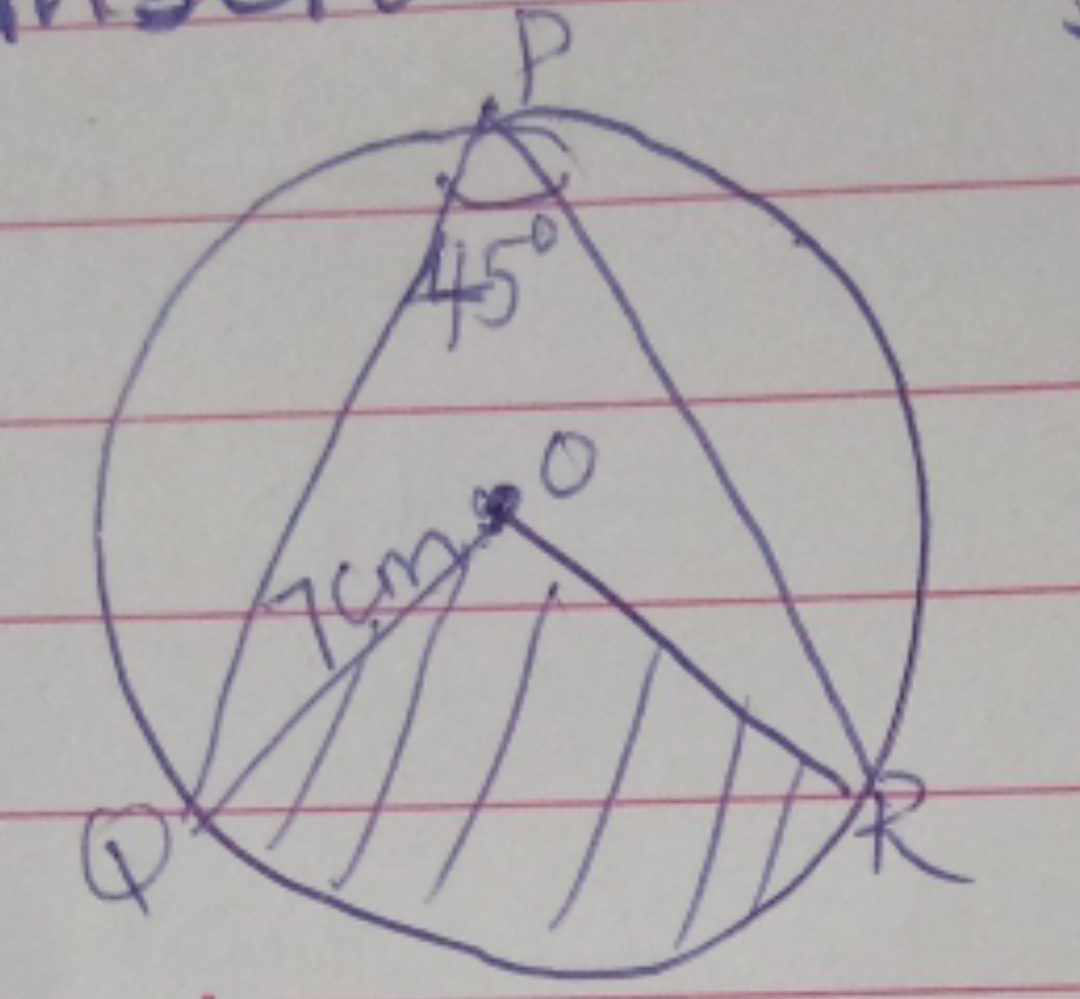 P
45°
O
7cm
Q
R